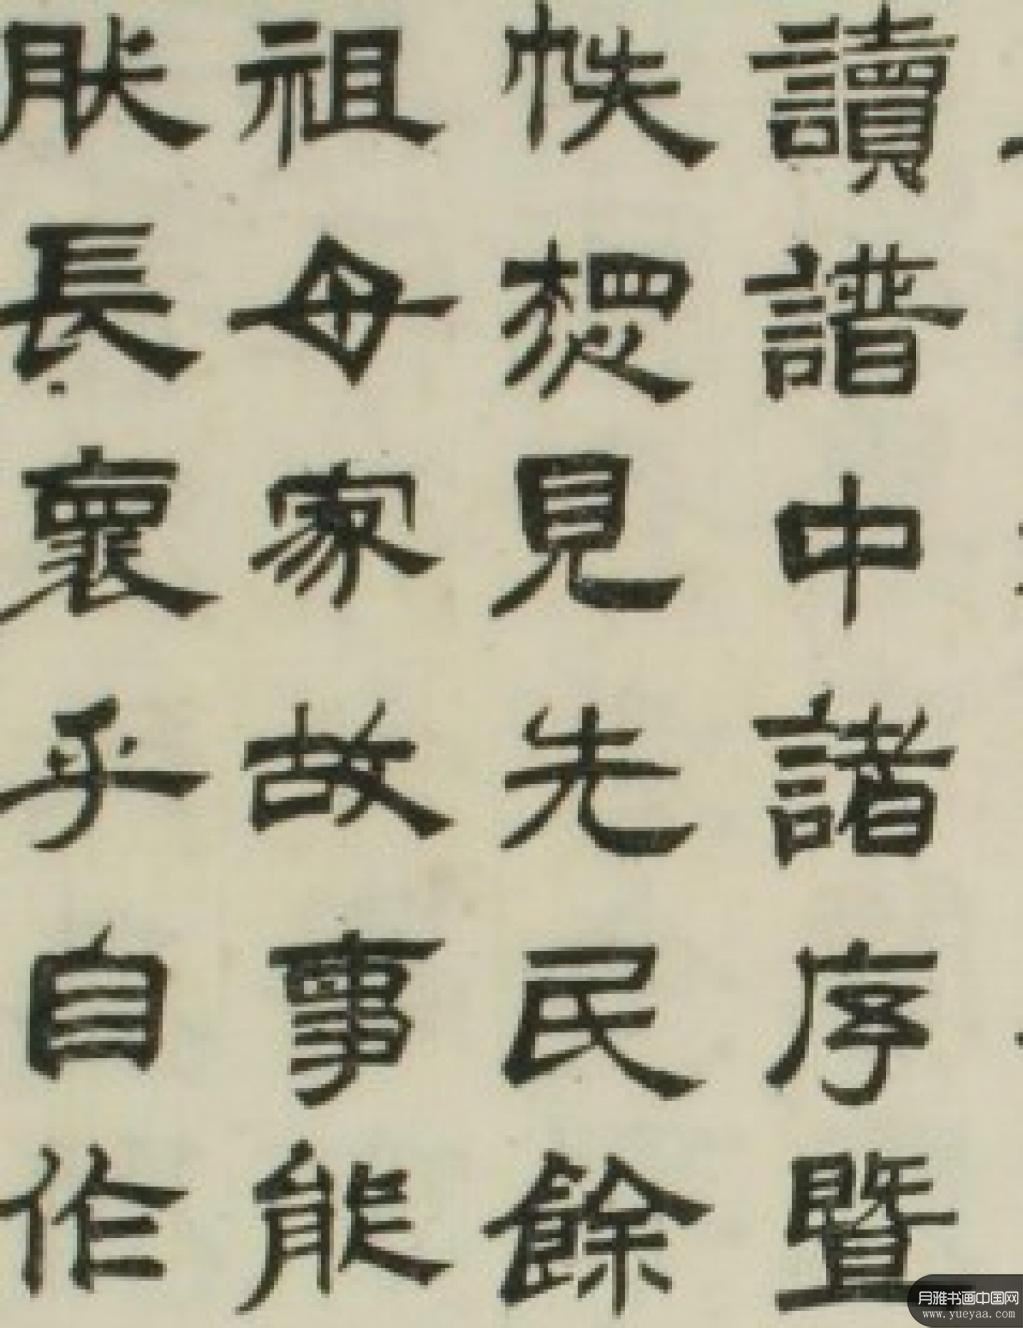 讀譜中諸序暨
帙想見先民餘
祖母家故事能
肰長褱乎自作
月雅书画中国网
www.yueyaa.com